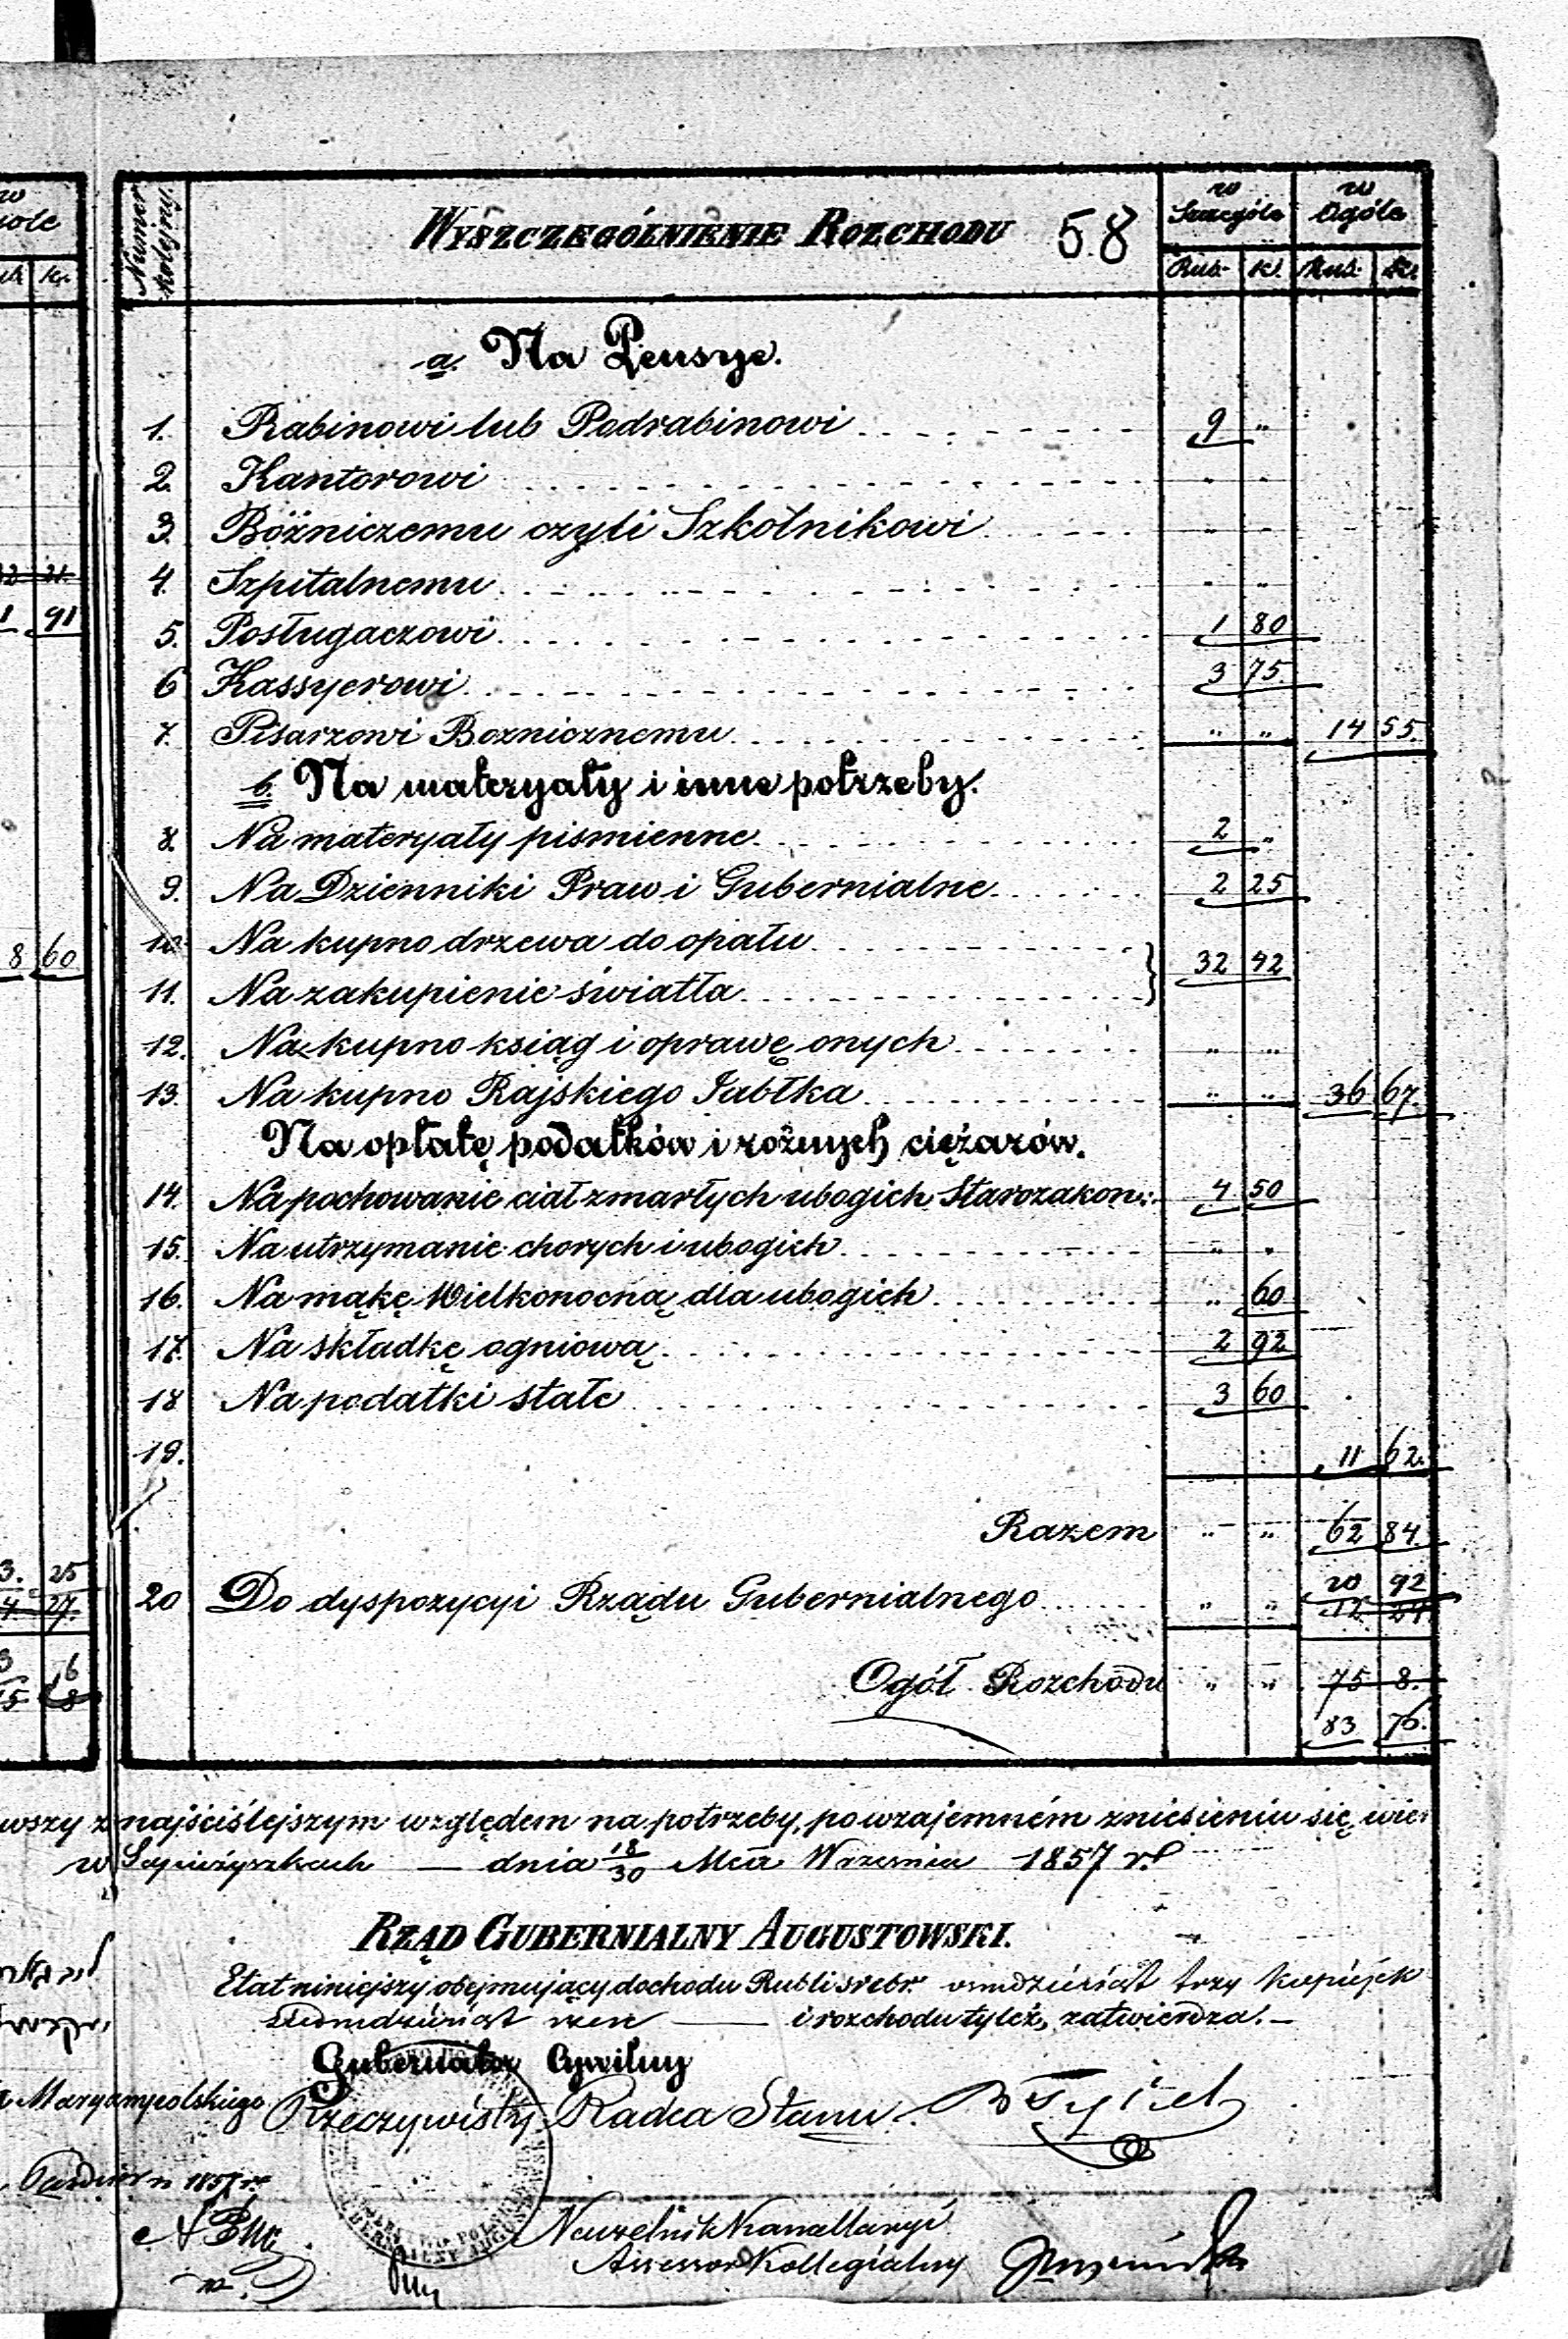 w
iole
kp.
21.
1 91
8 60
3. 25
4 27.
3 6
15 8
Numer kolejny.
WYSZCZEGÓLNIENIE ROZCHODU 58
w Szczególe
w Ogóle
Rub. k. Rub. k.
a. Na Pensye.
1. Rabinowi lub Podrabinowi 9 "
2. Kantorowi " "
3. Bóżniczemu czyli Szkolnikowi " "
4. Szpitalnemu " "
5. Posługaczowi 1 80
6 Kassyerowi 3 75
7. Pisarzowi Boznicznemu " " 14 55.
b. Na materyały i inne potrzeby.
8. Na materyały piśmienne 2 "
9. Na Dzienniki Praw i Gubernialne 2 25
10. Na kupno drzewa do opału
} 32 42
11. Na zakupienie światła
12. Na kupno ksiąg i oprawę onych " "
13. Na kupno Rajskiego Jabłka " " 36 67.
Na opłatę podatków i różnych ciężarów.
14. Na pochowanie ciał zmarłych ubogich Starozakon: 4 50
15. Na utrzymanie chorych i ubogich " "
16. Na mąkę Wielkonocną dla ubogich " 60
17. Na składkę ogniową 2 92
18 Na podatki stałe 3 60
19. 11 62.
Razem " " 62 84.
20 92
20 Do dyspozycyi Rządu Gubernialnego " " 12 24.
Ogół Rozchodu " " 75 8.
83 76.
wszy z najściślejszym względem na potrzeby, po wzajemném zniesieniu się, wier
w Sapieżyszkach — dnia 18/30 Mca Wrzesnia 1857 r.
RZĄD GUBERNIALNY AUGUSTOWSKI.
Etat niniejszy obejmujący dochodu Rubli srebr. osmdziesiąt trzy kopiejek
siedmdziesiąt szesc — i rozchodu tyleż, zatwierdza. —
Gubernator Cywilny
Rzeczywisty Radca Stanu
Maryampolskiego
1857 r.
Naczelnik Kancellaryi
Assessor Kollegialny